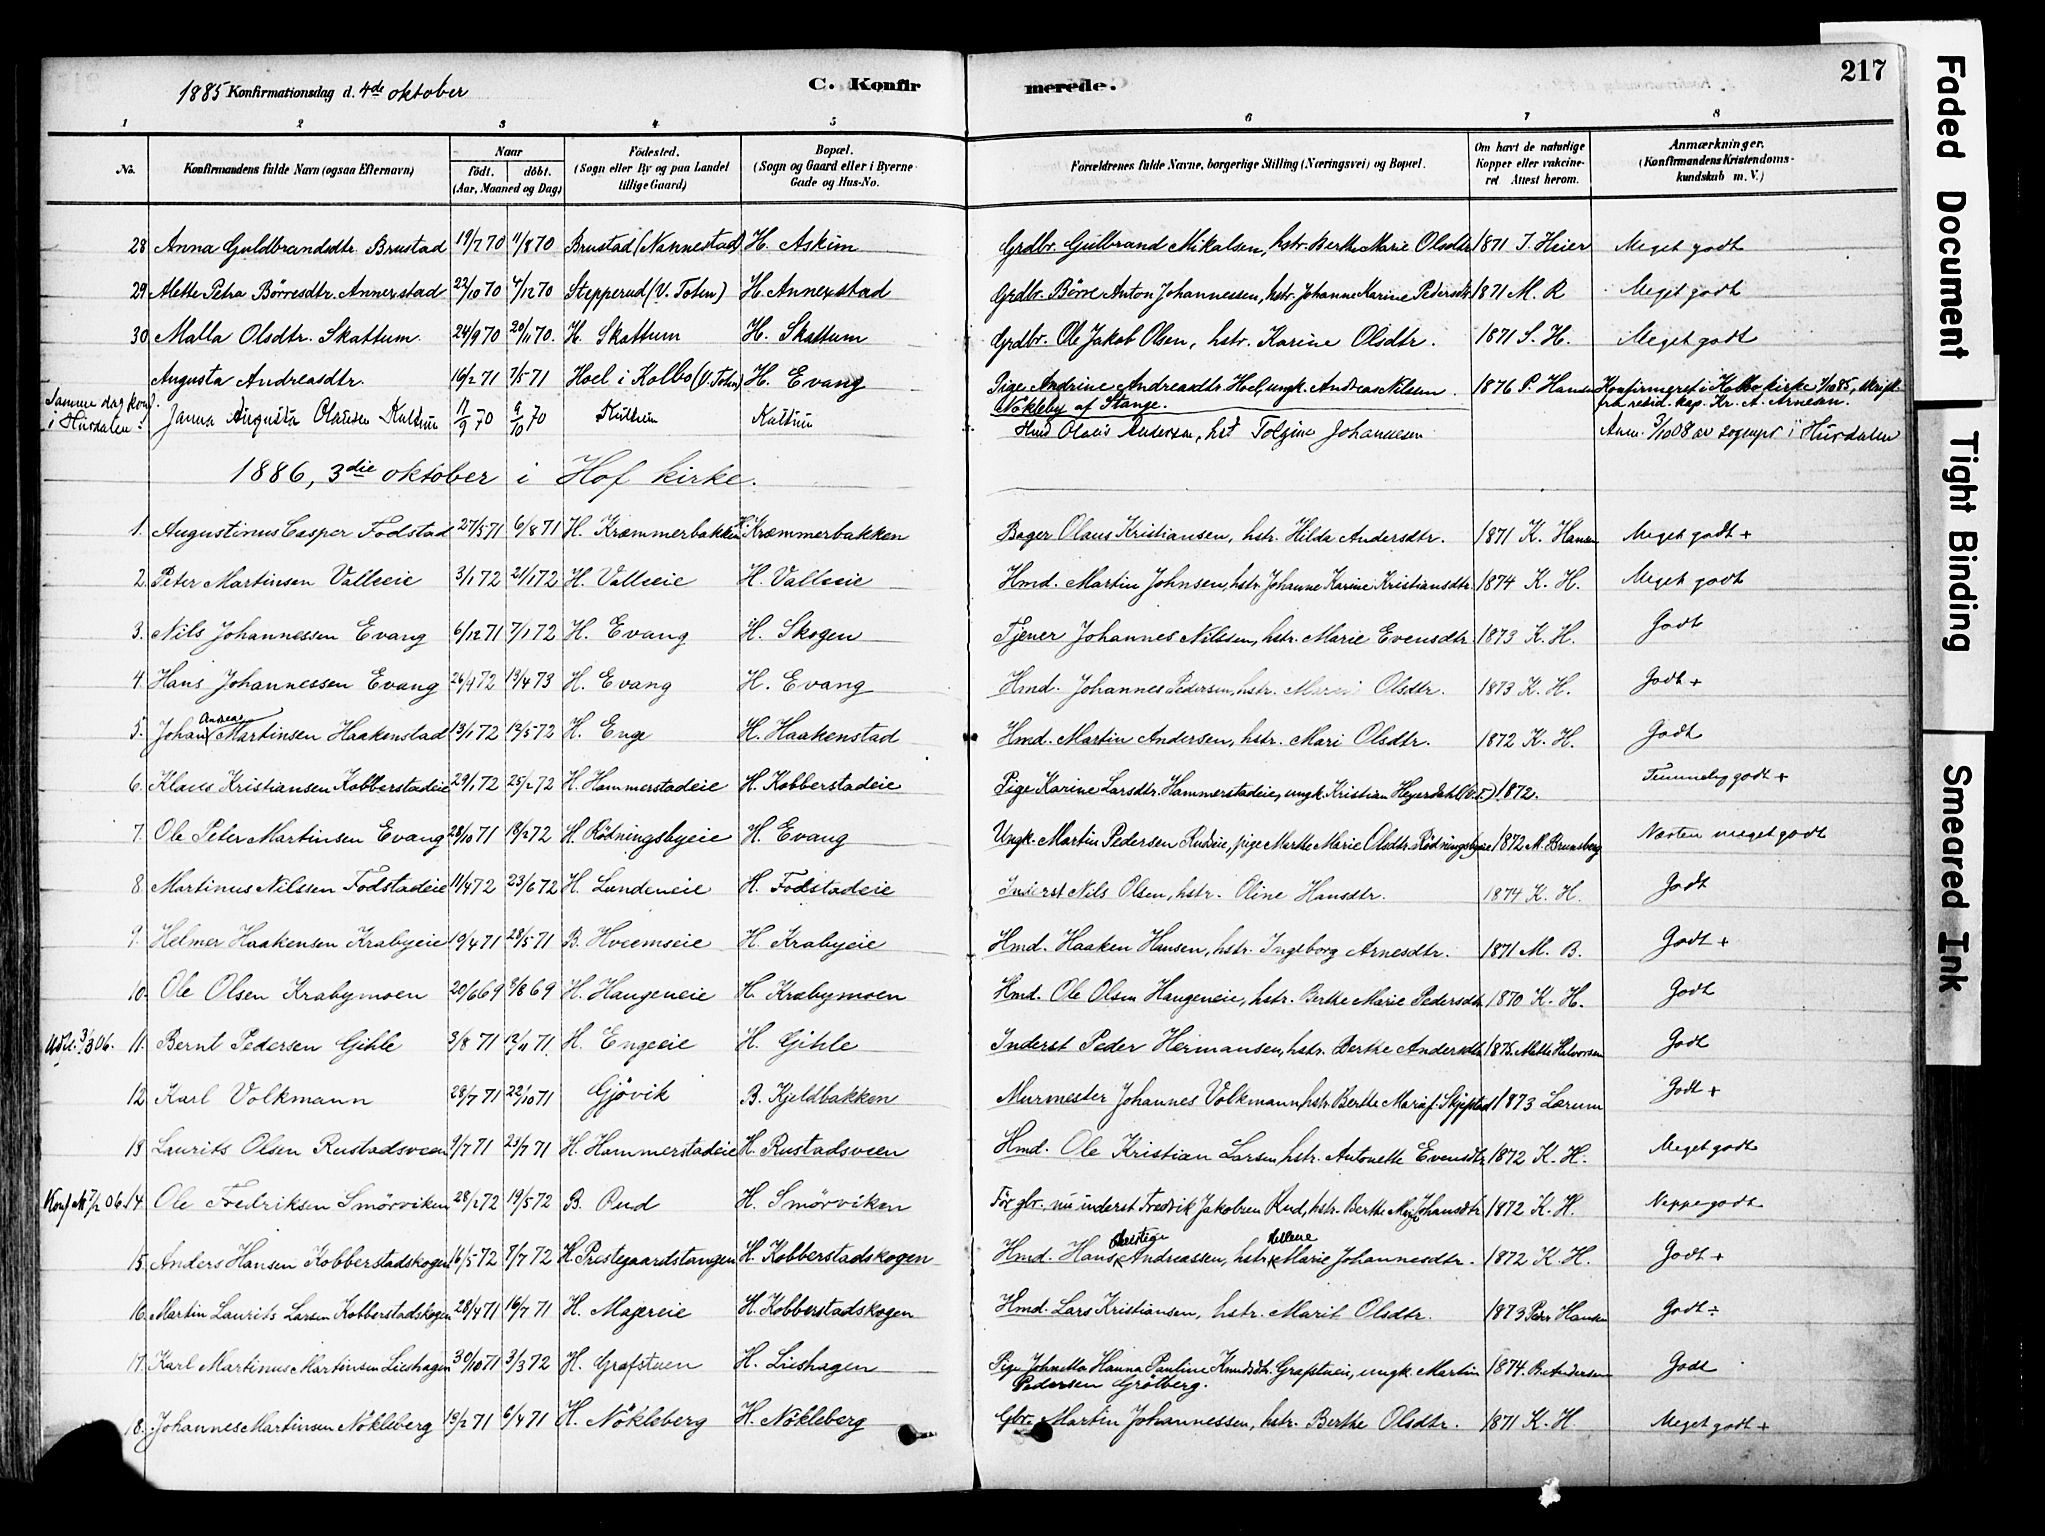 1885 Konfirmationsdag d. 4de oktober
C. Konfirmerede.
217
1 2 3 4 5 6 7 8
No. Konfirmandens fulde Navn (ogsaa Efternavn) Naar født. døbt. (Aar, Maaned og Dag) Fødested. (Sogn eller By og paa Landet tillige Gaard) Bopæl. (Sogn og Gaard eller i Byerne Gade og Hus-No. Forældrenes fulde Navne, borgerlige Stilling (Næringsvei) og Bopæl. Om havt de naturlige Kopper eller vakcineret Attest herom. Anmærkninger. (Konfirmandens Kristendomskundskab m. V.)
28 Anna Guldbrandsdtr. Brustad 19/7 70 11/8 70 Brustad (Nannestad) H. Askim Grdbr. Gulbrand Mikalsen, hstr. Berthe Marie Olsdtr 1871 J. Heier Meget godt
29 Alette Petra Börresdtr. Annexstad 22/10 70 4/12 70 Stepperud (V. Toten) H. Annexstad Grdbr. Börre Anton Johannessen, hstr. Johanne Karine Pedersdtr. 1871 M. R Meget godt
30 Malla Olsdtr. Skattum. 24/9 70 20/11 70. H. Skattum H. Skattum Grdbr. Ole Jakob Olsen, hstr. Karine Olsdtr. 1871 S. H. Meget godt
Augusta Andreasdtr. 16/2 71 7/5 71 Hoel i Kolbo (V. Toten) H. Evang Pige Andrine Andreasdtr Hoel, ungk. Andreas Nilsen Nökleby af Stange. 1876 P. Hansen Konfirmeret i Kolbo kirke 85, fra resid. kap. Kr. A. Arnesen.
Samme dag konf. i Hurdalen: Augusta Olausen 17/9 70 9/10 70 Hmd Olaus Andersen, hst Johannesen Anm. 3/10 08 av sogepr i Hurdalen
1886, 3die oktober i Hof kirke.
1. Augustinus Casper Fodstad 27/5 71 6/8 71 H. Kræmmerbakken H. Kræmmerbakken Bager Olaus Kristiansen, hstr. Hilda Andersdtr. 1871 K. Hansen Meget godt +
2. Peter Martinsen Valleeie 3/1 72 21/1 72 H. Valleeie H. Valleeie Hmd. Martin Johnsen, hstr. Johanne Karine Kristiansdtr. 1874 K. H. Meget godt
3. Nils Johannessen Evang 6/12 71 7/1 72 H. Evang H. Skogen Tjener Johannes Nilssen, hstr. Marie Evensdtr. 1873 K. H. Godt
4. Hans Johannessen Evang 26/9 72 13/4 73 H. Evang H. Evang Hmd. Johannes Pedersen, hstr. Mari Olsdtr. 1873 K. H. Godt +
5. Johan Andreas Martinsen Haakenstad 13/1 72 19/5 72 H. Enge H. Haakenstad Hmd. Martin Andersen, hstr. Mari Olsdtr. 1872 K. H. Godt
6. Klaus Kristiansen Kobberstadeie 29/1 72 25/2 72 H. Hammerstadeie H. Kobberstadeie Pige Karine Larsdtr. Hammerstadeie, ungk. Kristian Heyerdahl (V.T.) 1872. Temmelig godt +
7. Ole Peter Martinsen Evang 28/10 71 18/2 72 H. Rödningsbyeie H. Evang Ungk. Martin Pedersen Rudeie, pige Marthe Marie Olsdtr. Rödningsbyeie 1872 M. Brunsberg Næsten meget godt
8. Martinus Nilssen Fodstadeie 11/4 72 23/6 72 H. Lundeneie H. Fodstadeie Inderst Nils Olsen, hstr. Oline Hansdtr. 1874 K. H. Godt
9. Helmer Haakensen Krabyeie 19/4 71 28/5 71 B. Hveemseie H. Krabyeie Hmd. Haaken Hansen, hstr. Ingeborg Arnesdtr. 1871 M. B. Godt +
10. Ole Olsen Krabymoen 20/6 69 8/8 69 H. Haugeneie H. Krabymoen Hmd. Ole Olsen Haugeneie, hstr. Berthe Marie Pedersdtr 1870 K. H. Godt
Udst. 3/3 06. 11. Bernt Pedersen Gihle 3/8 71 12/11 71. H. Engeeie H. Gihle Inderst Peder Hermansen, hstr. Berthe Andersdtr. 1875. Mette Halvorsen Godt
12 Karl Volkmann 28/7 71 22/10 71 Gjövik B. Kjeldbakken Murmester Johannes Volkmann, hstr. Berthe Maria f. Skjepstad 1873 Larum Godt +
13 Laurits Olsen Rustadsveen 9/7 71 23/7 71 H. Hammerstadeie H. Rustadsveen Hmd. Ole Kristian Larsen, hstr. Antonette Evensdtr 1872 K. H. Meget godt
Konf. At 7/2 06. 14. Ole Fredriksen Smörviken 28/2 72 19/5 72 B. Rud H. Smörviken För gbr. nu inderst Fredrik Jakobsen Rud, hstr. Berthe Marie Johansdtr 1872 K. H. Neppe godt
15. Anders Hansen Kobberstadskogen 16/5 72 7/7 72 H. Prestegaardstangen H. Kobberstadskogen Hmd. Hans Andreassen, hstr. Marie Johannesdtr. 1872 K. H. Godt +
16. Martin Laurits Larsen Kobberstadskogen 28/4 71 16/7 71 H. Majereie H. Kobberstadskogen Hmd. Lars Kristiansen, hstr. Marit Olsdtr. 1873 Peter Hansen Godt ÷
17. Karl Martinus Martinsen Lieshagen 30/10 71 3/3 72 H. Grafstuen H. Lieshagen Pige Johnetta Hanna Pauline Knudsdtr. Grafstuen, ungk. Martin Pedersen Grötberg. 1874. B. Andersen Godt
18. Johannes Martinsen Nökleberg 19/2 71 6/4 71 H. Nökleberg H. Nökleberg Gbr. Martin Johannessen, hstr. Berthe Olsdtr. 1871 K. H Meget godt +
Faded Document
Tight Binding
Smeared Ink